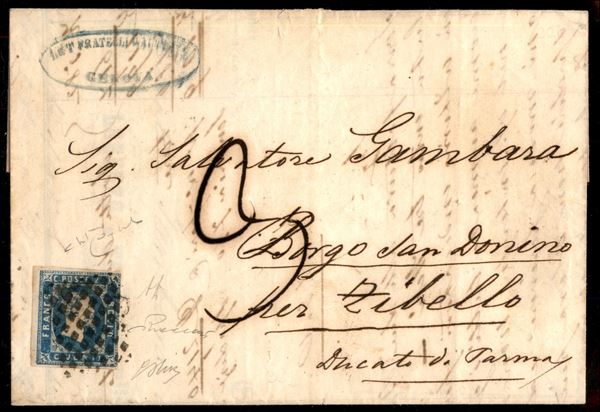 FRATELLI
GENOVA
Sig. Salvatore Gambara
3
Borgo San Donino
per Zibello
Ducato di Parma
C. POSTE
FRANCO
VENTI
C. VENTI